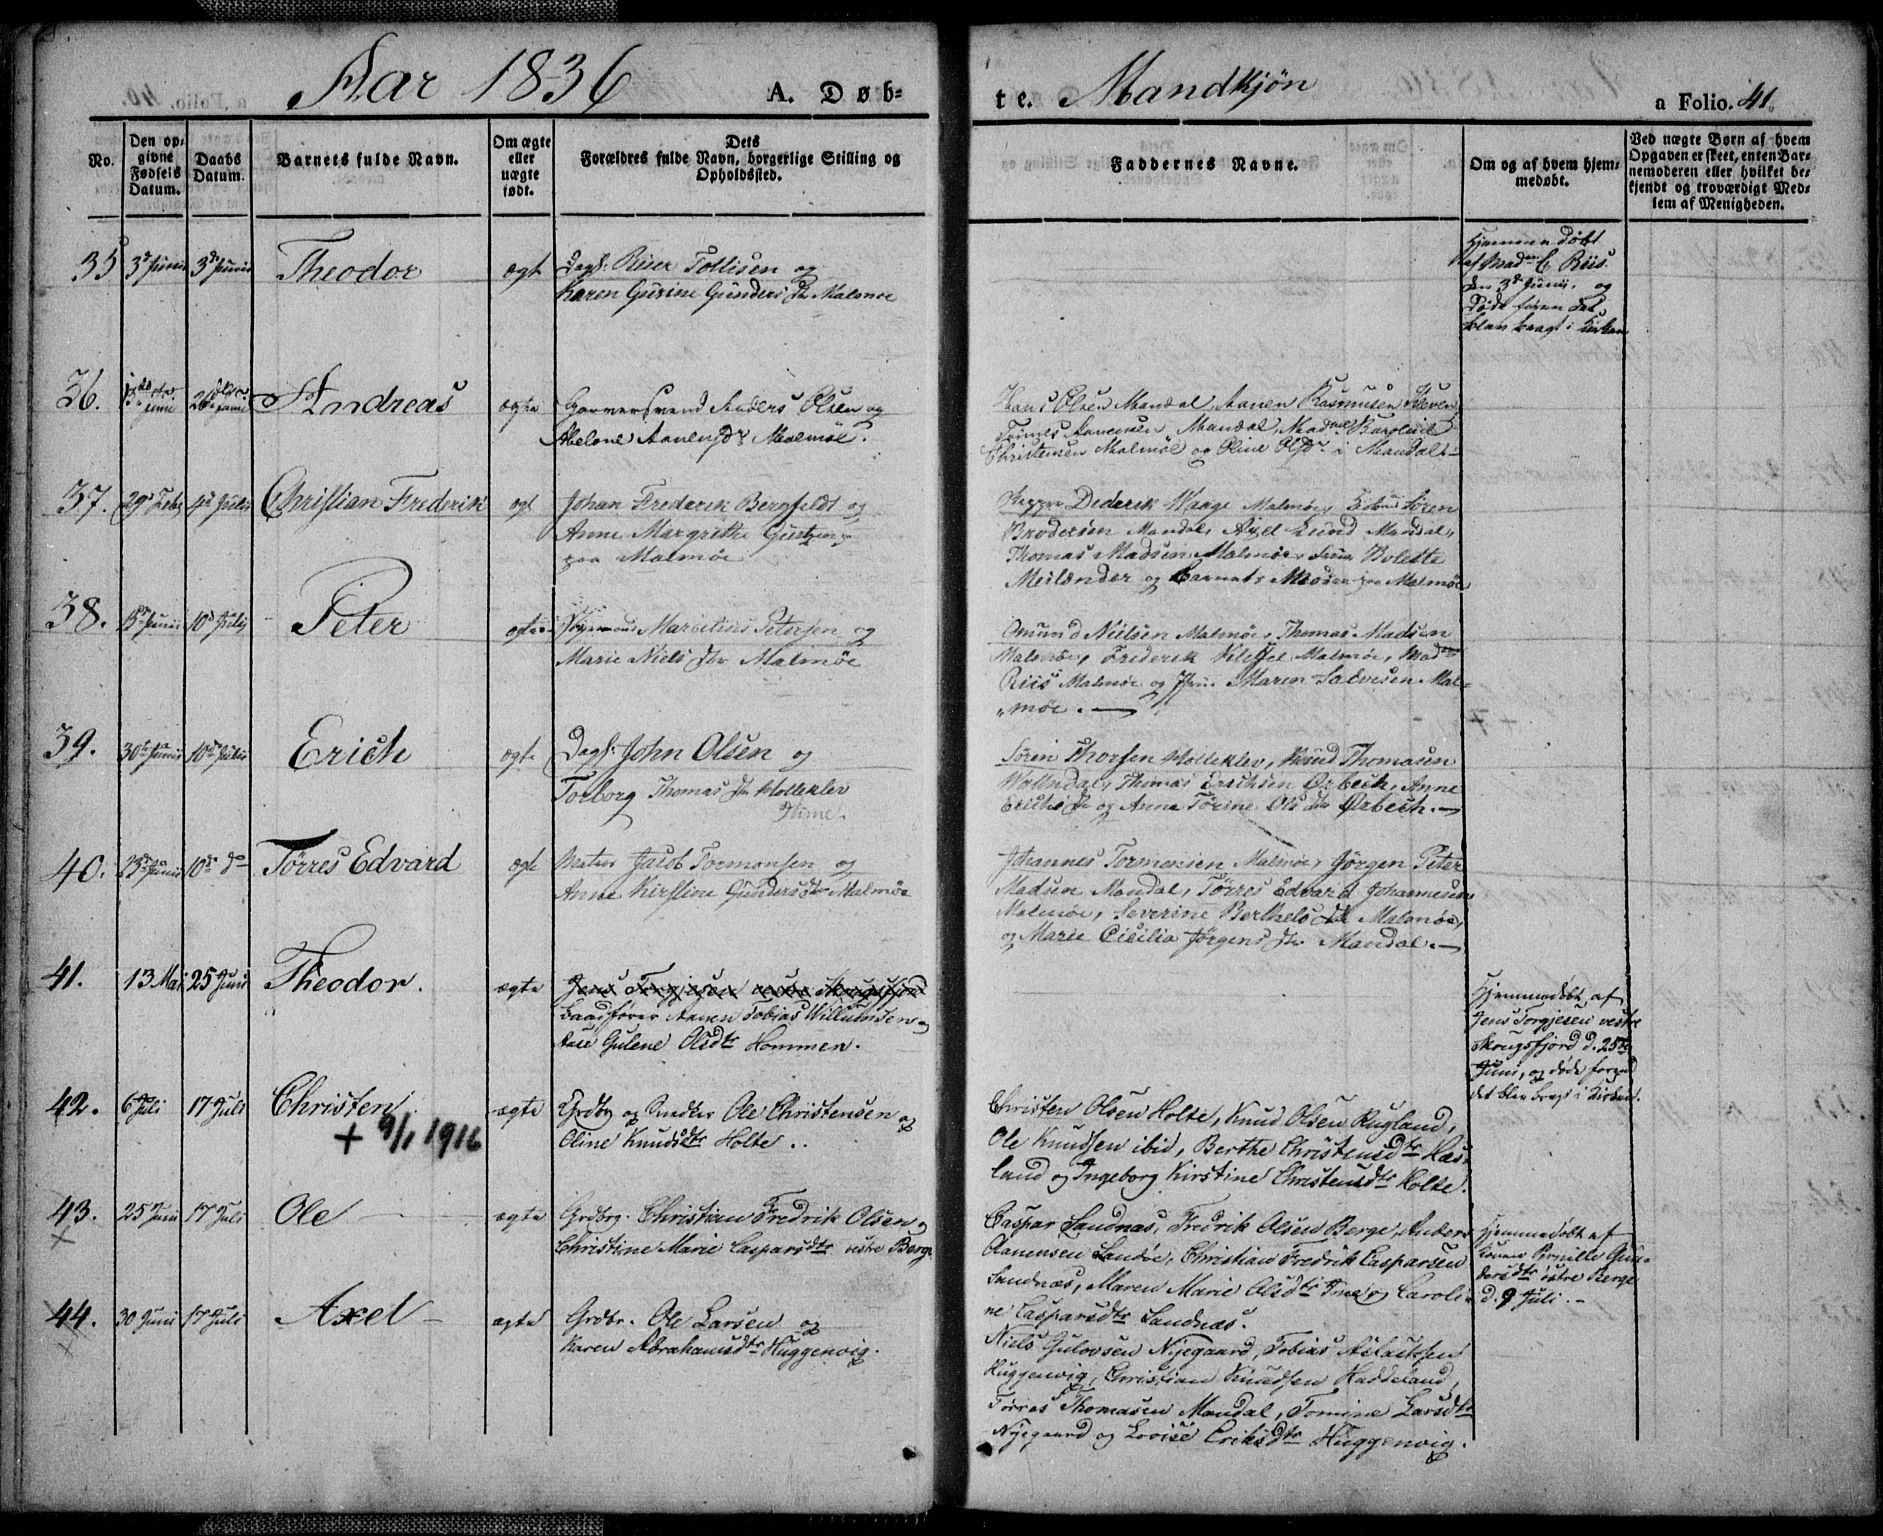 Aar 1836 A. Døb=
te. Mandkjøn a Folio. 41.
No.
Den op=
givne
Fødsels
Datum.
Daabs
Datum.
Barnets fulde Navn.
Om ægte
eller
uægte
født.
Dets
Forældres fulde Navn, borgerlige Stilling og
Opholdssted.
Faddernes Navne.
Om og af hvem hjem=
medøbt.
Ved uægte Børn af hvem
Opgaven er skeet, enten Bar=
nemoderen eller hvilket be=
kjendt og troværdigt Med=
lem af Menigheden.
35 3d Junii 3d Junii Theodor ægte Dagl: Reier Tollisen og
Karen Gurine Gunders Dtr Malmøe
Hjemmedøbt
af Madm C Riis
den 3d Junii, og
døde føren det
blev bragt i Kirken
36. Junii Junii Andreas ægte Garversvend Anders Olsen og
Abelone Aanensdr Malmøe.
Hans Olsen Mandal, Aanen Rasmusen
Aanensen Mandal, Madme
Christensen Malmøe og Oline Olsdr i Mandal
37. 29d Feb 4d Julii Christian Frederik ægt Johan Frederik Bergfeldt og
Anne Margrethe
paa Malmøe
Dederik Waage Malmøe, Søren
Brodersen Mandal, Axel Lund Mandal,
Thomas Madsen Malmøe, Bolette
Meilænder og Barnets Moder paa Malmøe
38. 15d Junii 10d Julij Peter ægte Marcelius Petersen og
Marie Niels Dtr Malmøe
Omund Nielsen Malmøe, Thomas Madsen
Malmøe, Frederik Malmøe, Madme
Riis Malmøe og Maren Salvesen Mal=
møe. —
39. 30d Junii 10d Julii Erich ægte Dagl: John Olsen og
Torborg Thomas Dtr Holleklev
Søren Thorsen Holleklev, Knud Thomasen
Thomas Erichsen Ørbech, Anne
Erichs Dtr og Anne Tørine Ols Dtr Ørbech. —
40. Junii 10d do Tørres Edvard ægte Matros Jacob Tormonsen og
Anne Kirstine Gundersdtr Malmøe
Johannes Tormonsen Malmøe, Jørgen Peter
Madsen Mandal, Tørres Edvard Johannesen
Malmøe, Severine Berthels Dtr Malmøe,
og Marie Cicilia Jørgens Dtr Mandal. —
41. 13 Mai 25 Junii Theodor. ægte Jens Torgjesen vestre Skougsfjord
Baadfører Aanen Tobias Willumsen og
Aase Gulene Olsdtr Hommen.
Hjemmedøbt af
Jens Torgjesen vestre
Skougsfjord d. 25de
Juni, og døde forend
det blev bragt i Kirken.
42. 6 Juli 17 Juli Christen ægte Grdbr og Smeder Ole Christensen og
Oline Knudsdtr Holte.
+ 9/1 1916
Christen Olsen Holte, Knud Olsen Rugland,
Ole Knudsen ibid, Berthe Christensdtr Has=
land og Ingeborg Kirstine Christensdtr Holte.
43. 25 Juni 17 Juli Ole — ægte Grdbrg. Christian Fredrik Olsen og
Christine Marie Caspersdtr vestre Berge
Caspar Sandnæs, Fredrik Olsen Berge, Anders
Aanensen Sandøe, Christian Fredrik Casparsen
Sandnæs, Maren Marie Olsdtr og Caroli=
ne Casparsdtr Sandnæs.
Hjemmedøbt af
Konen Pernille Gun=
dersdtr østre Berge
d. 9 Juli. —
44. 30 Juni 17 Juli Axel — ægte Grdbr. Ole Larsen og
Karen Abrahamsdtr Huggenvig.
Niels Gulovsen Nyegaard, Tobias Aslacksen
Huggenvig, Christian Knudsen Haddeland,
Tørres Thomasen Mandal, Tomine Larsdtr
Nyegaard og Lovise Eriksdtr Huggenvig.